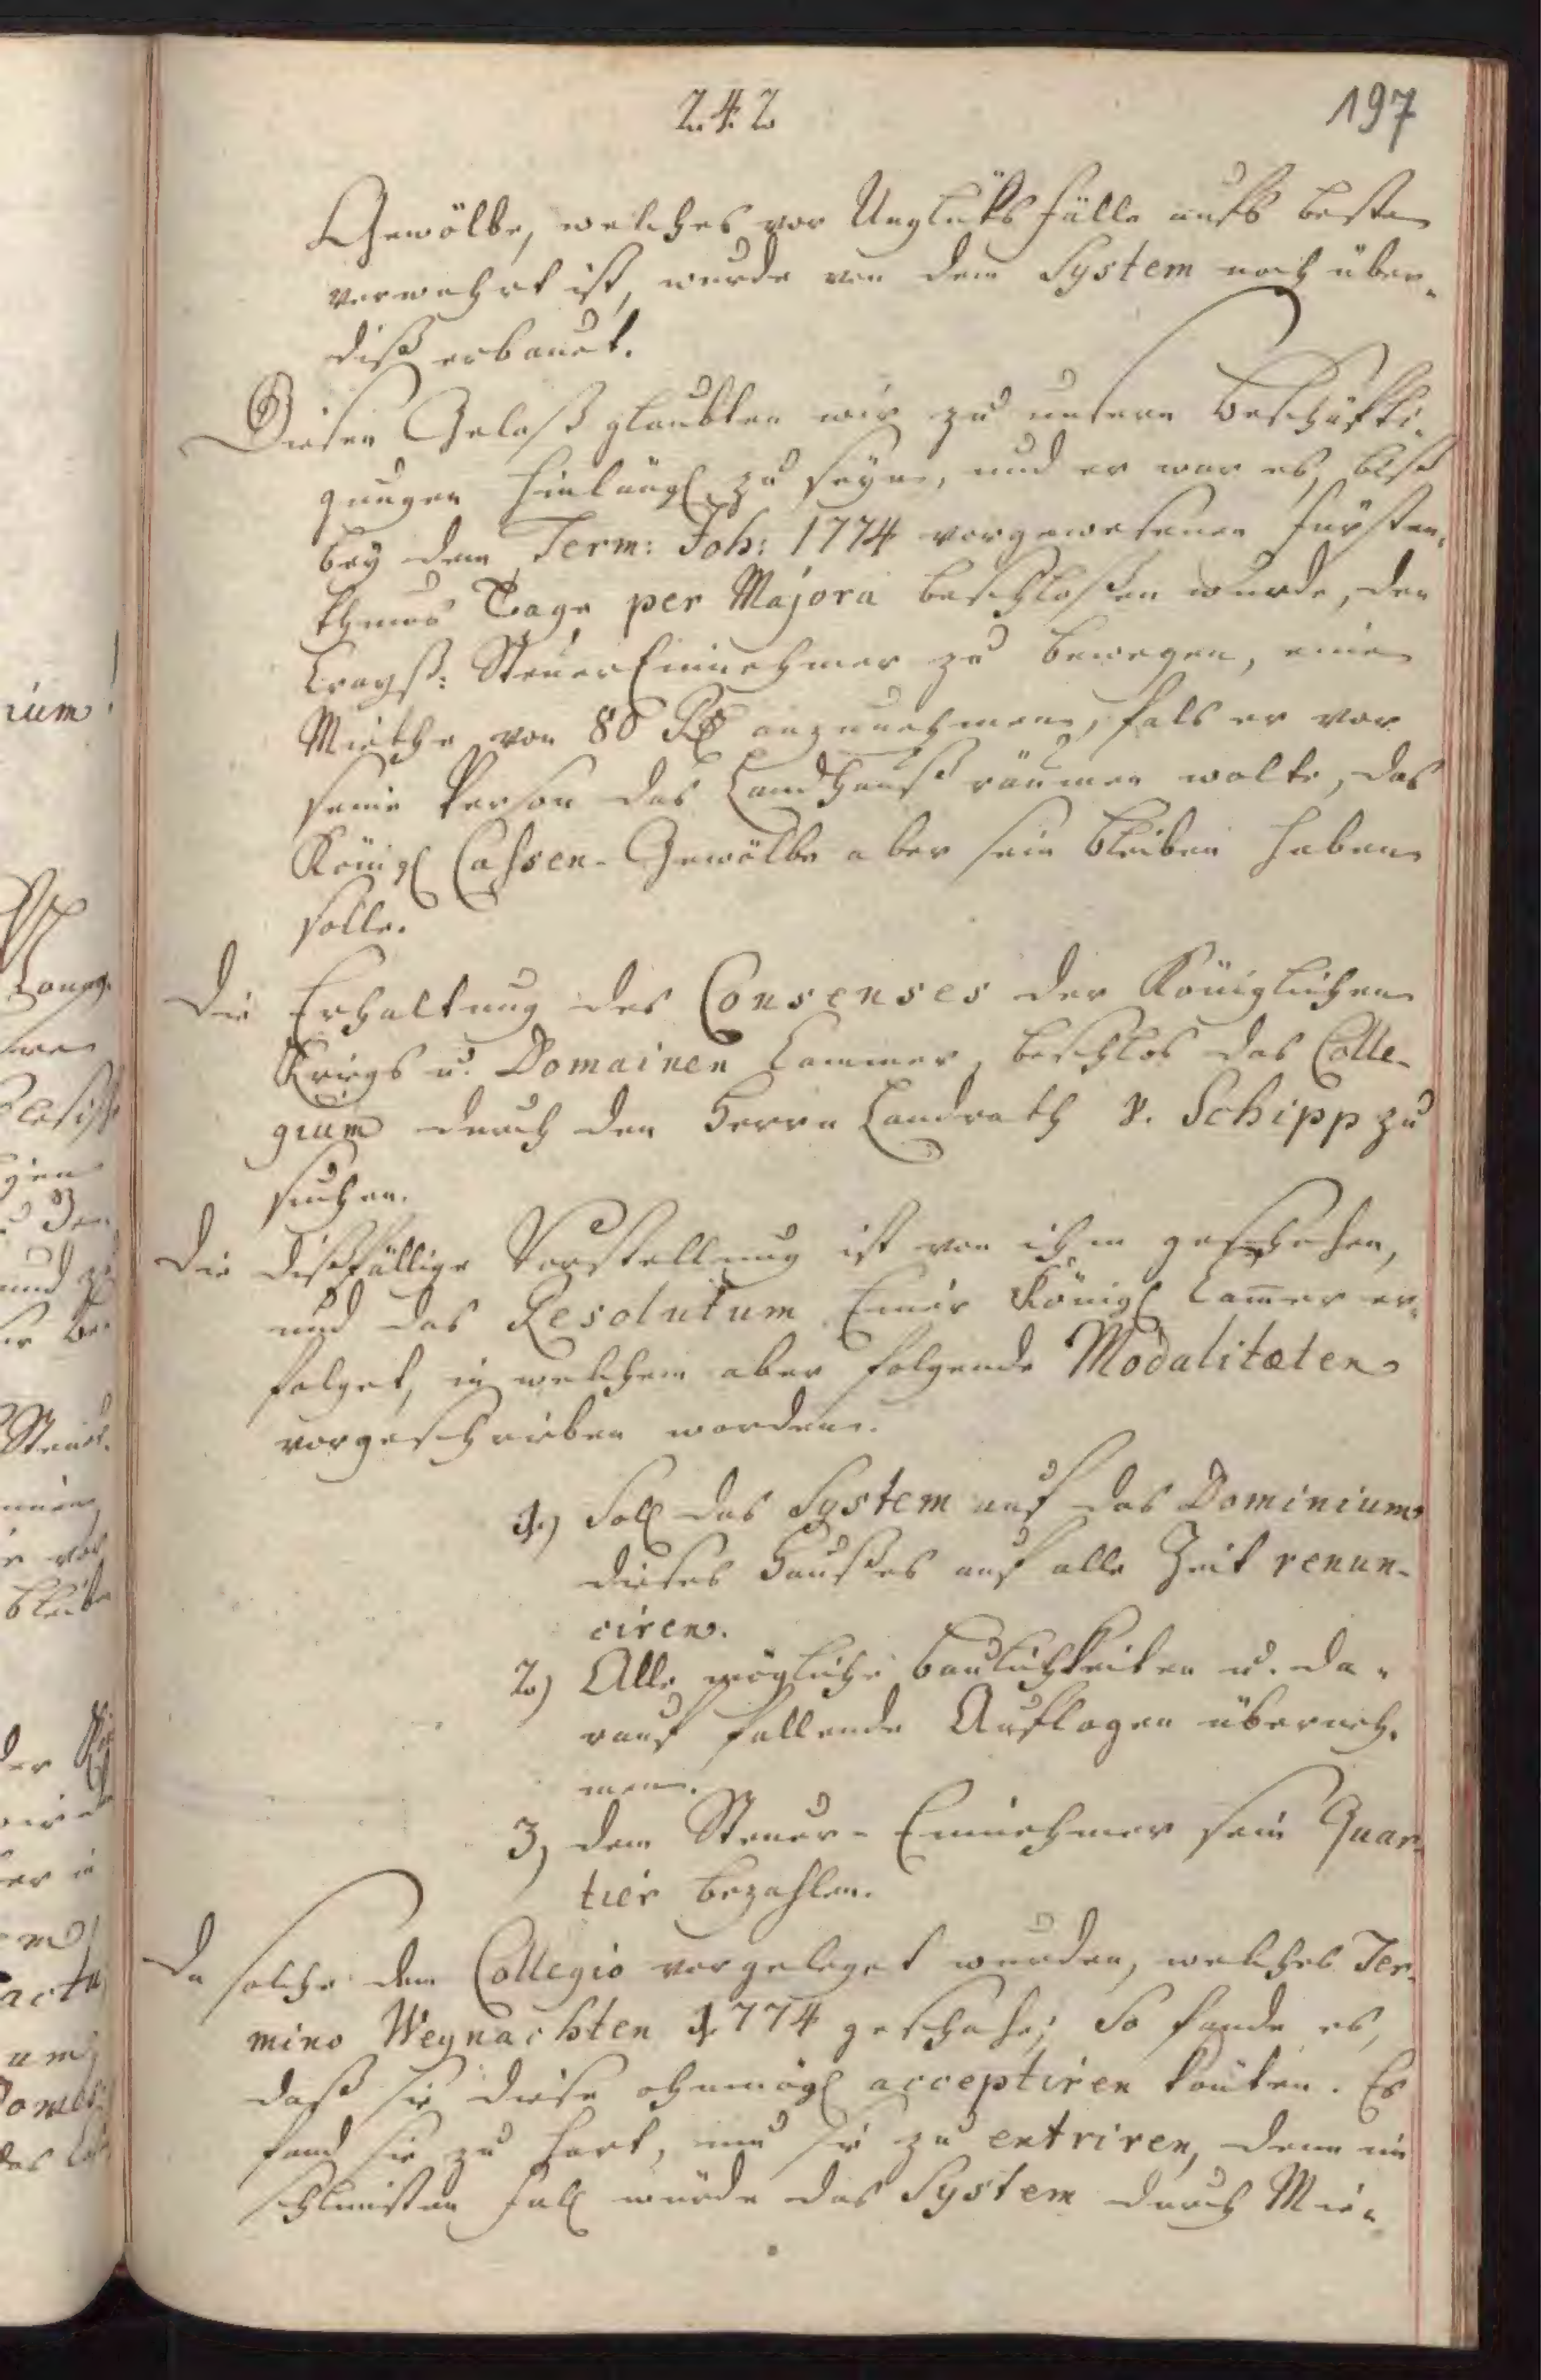 242
197
Gewölbe, welches vor Unglüks fälle aufs beste
verwahrt ist, wurde von dem System noch über„
diß erbauet.
Diesen Gelaß glaubten wir zu unsern Beschäfti„
gungen hinlängl. zu seyn, und er war es, biß
bey dem Term: Joh: 1774 vorgewesenen Fürsten„
thums Tage per Majora beschloßen wurde, den
Crayß: Steuer Einnehmer zu bewegen, eine
Miethe von 80 Rtl anzunehmen, fals er vor
seine Person das Landhauß räumen wolte, das
Königl Cassen-Gewölbe aber sein bleiben haben
solle.
Die Erhaltung des Consenses der Königlichen
Kriegs u. Domainen Cammer, beschlos das Colle-
gium durch den Herrn Landrath v. Schipp zu
suchen.
Die dißfällige Vorstellung ist von ihm geschehen,
und das Resolutum Einer Königl Cammer er„
folget, in welchem aber folgende Modalitæten
vorgeschrieben worden.
1.) Soll das System auf das Dominium
dieses Haußes auf alle Zeit renun-
ciren.
2.) Alle mögliche Baulichkeiten u. da„
rauf fallende Auflagen überneh„
men.
3, dem Steuer-Einnehmer sein Quar„
tier bezahlen.
Da solche dem Collegio vorgeleget wurden, welches Ter„
mino Weynachten 1774 geschahe; So fande es,
daß sie diese ohnmögl acceptiren könten. Es
fand sie zu hart, um sie zu entriren, denn im
schlimsten Fall würde das System durch Mie„